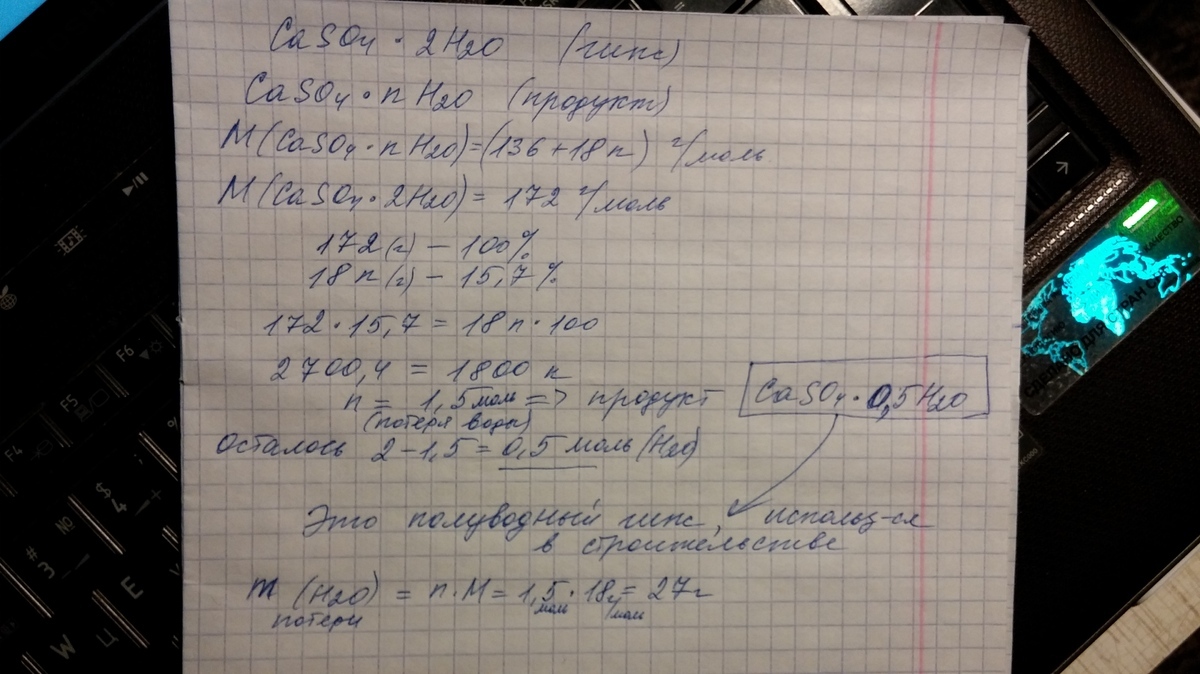 CaSO4 · 2H2O (гипс)
CaSO4 · n H2O (продукт)
M(CaSO4 · n H2O) = (136 + 18 n) г/моль
M(CaSO4 · 2H2O) = 172 г/моль
172 (г) – 100%
18 n (г) – 15,7 %
172 · 15,7 = 18 n · 100
2700,4 = 1800 n
n = 1,5 моль => продукт CaSO4 · 0,5 H2O
(потеря воды)
осталось 2 – 1,5 = 0,5 моль (H2O)
Это полуводный гипс, использ-ся
в строительстве
m (H2O) = n · M = 1,5 моль · 18 г/моль = 27 г
потери
F6
F5
F4
$
4
№
#
3
E
W
Ц
КАЧЕСТВО
ДЛЯ СТРАН